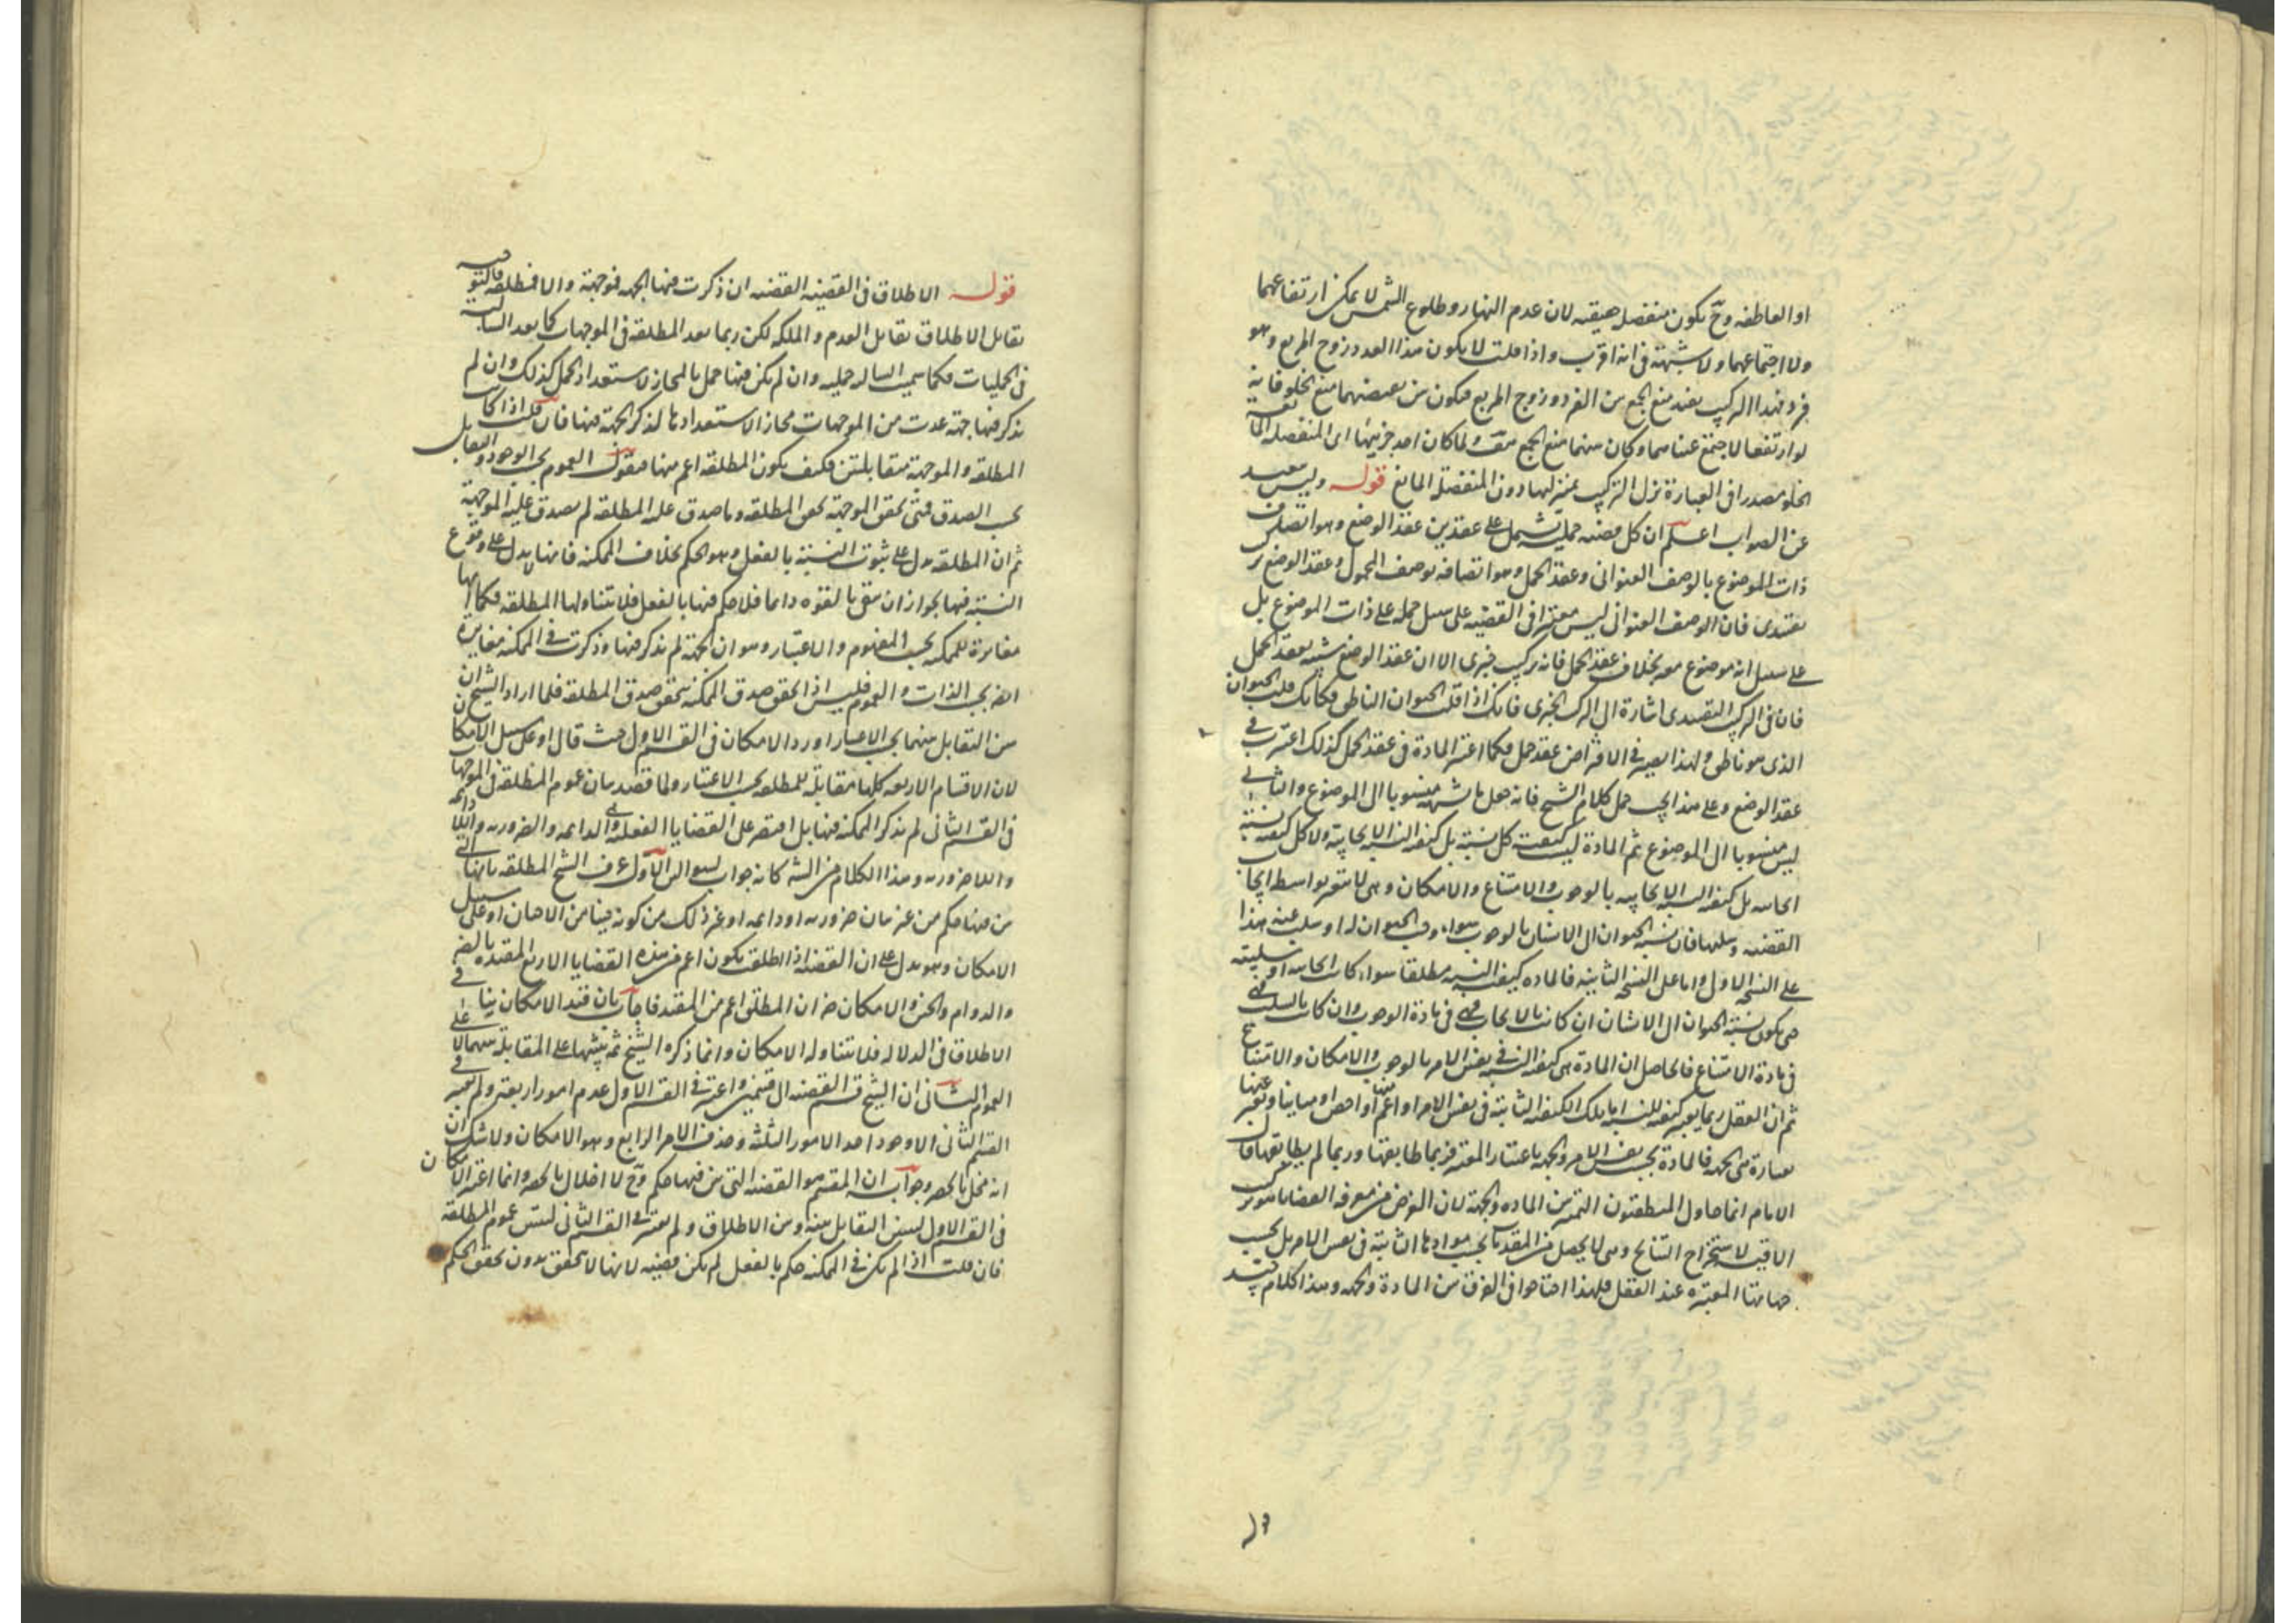 او العاطفه وح يكون منفصله حقيقيه لان عدم النهار وطلوع الشمس لا يمكن ارتفاعهما
ولا اجتماعهما ولا شبهة فى انه اقرب واذا قلت لا يكون هذا العدد زوج المربع وهو
فرد فهذا التركيب يفيد منع الجمع بين الفرد وزوج المربع فيكون بين نقيضيهما منع الخلو فانه
لو ارتفعا لاجتمع عيناهما وكان بينهما منع الجمع هف ولما كان احد جزئيها اى المنفصله المانعة
الخلو مصدرا فى العبارة نزل التركيب بمنزلتها دون المنفصلة المانع قوله وليس ببعيد
عن الصواب اعلم ان كل قضيه حمليه تشتمل على عقدين عقد الوضع وهو اتصاف
ذات الموضوع بالوصف العنوانى وعقد الحمل وهو اتصافه بوصف المحمول وعقد الوضع تر
تقييدى فان الوصف العنوانى ليس معتبرا فى القضيه على سبيل حمله على ذات الموضوع بل
على سبيل انه موضوع معه بخلاف عقد الحمل فانه تركيب خبرى الا ان عقد الوضع شبيه بعقد الحمل
فان فى التركيب التقييدى اشارة الى التركيب الخبرى فانك اذا قلت الحيوان الناطق فكانك قلت الحيوان
الذى هو ناطق ولهذا يصير فى الافتراض عقد حمل فكما اعتبر المادة فى عقد الحمل كذلك اعتبرت فى
عقد الوضع وعلى هذا يجب حمل كلام الشيخ فانه جعل ما يشبهه منسوبا الى الموضوع والتالى
ليس منسوبا الى الموضوع ثم المادة ليست كيفية كل نسبة بل كيفية النسبة الايجابية ولا كل كيفية نسبة
ايجابيه بل كيفية النسبة الايجابيه بالوجوب والامتناع والامكان وهى لا تتغير بواسطه ايجاب
القضيه وسلبها فان نسبة الحيوان الى الانسان بالوجوب سواء وجب الحيوان له او سلب عنه هذا
على النسخه الاولى واما على النسخه الثانيه فالماده كيفية النسبه مطلقا سواء كانت ايجابيه او سلبيه
حتى يكون نسبة الحيوان الى الانسان ان كانت بالايجاب فهى فى مادة الوجوب وان كانت بالسلب فهى
فى مادة الامتناع فالحاصل ان المادة هى كيفية النسبة فى نفس الامر بالوجوب والامكان والامتناع
ثم ان العقل ربما يعتبر كيفيه للنسبه اما تلك الكيفيه الثابتة فى نفس الامر او اعم منها او اخص او مباينا ويعبر عنها
بعبارة هى الجهه فالمادة بحسب نفس الامر والجهه باعتبار المعتبر فربما طابقتها وربما لم يطابقها قال
الامام انما حاول المنطقيون التمييز بين الماده والجهة لان الغرض من معرفة القضايا هو تركيب
الاقيسه لاستخراج النتايج وهى لا يحصل من المقدمات بحسب موادها الثابتة فى نفس الامر بل بحسب
جهاتها المعتبره عند العقل فلهذا احتاجوا فى الفرق بين المادة والجهه وهذا كلام جيد
قوله الاطلاق فى القضيه القضيه ان ذكرت فيها الجهه فموجهة والا فمطلقه فالتوجيه
يقابل الاطلاق تقابل العدم والملكه لكن ربما يعد المطلقه فى الموجهات كما يعد السالبة
فى الحمليات فكما سميت السالبه حمليه وان لم يكن فيها حمل بالمجاز لاستعداد الحمل كذلك وان لم
يذكر فيها جهة عدت من الموجهات مجازا لاستعدادها لذكر الجهة فيها فان قلت اذا كانت
المطلقه والموجهة متقابلتين فكيف يكون المطلقه اعم منها فنقول العموم بحسب الوجود والتقابل
بحسب الصدق فمتى تحقق الموجهة تحقق المطلقه وما صدق عليه المطلقه لم يصدق عليه الموجهة
ثم ان المطلقه تدل على ثبوت النسبة بالفعل وهو الحكم بخلاف الممكنه فانها لا يدل على وقوع
النسبة فيها لجواز ان يبقى بالقوه دائما فلا حكم فيها بالفعل فلا تتناولها المطلقه فكما انها
مغايرة للممكنه بحسب المفهوم والاعتبار وهو ان الجهة لم يذكر فيها وذكرت فى الممكنه مغايرة
ايضا بحسب الذات والعموم فليس اذا تحقق صدق الممكنه تحقق صدق المطلقه فلما اراد الشيخ ان
يبين التقابل بينهما بحسب الاعتبار اورد الامكان فى القسم الاول حيث قال او على سبيل الامكان
لان الاقسام الاربعه كلها مقابلة للمطلقه بحسب الاعتبار ولما قصد بيان عموم المطلقه فى الموجهات
فى القسم الثانى لم يذكر الممكنه فيها بل اقتصر على القضايا الفعليه وهى الدائمه والضروريه واللادائمه
واللاضروريه وهذا الكلام من الشرح كانه جواب لسوالين الاول عرف الشيخ المطلقه بانها التى
بين فيها حكم من غير بيان ضروريه او دائمه او غير ذلك من كونه حينا من الاحيان او على سبيل
الامكان وهو يدل على ان القضيه اذا اطلقت يكون اعم من هذه القضايا الاربع المقيده بالضر
والدوام والحين والامكان ضرورة ان المطلق اعم من المقيد فاجاب بان قيد الامكان ينافى
الاطلاق فى الدلاله فلا تتناوله الامكان وانما ذكره الشيخ ثمه تنبيها على المقابلة بينهما لا على
العموم الثانى ان الشيخ قسم القضيه الى قسمين واعتبر فى القسم الاول عدم امور اربعة ولم يعتبر فى
القسم الثانى الا وجود احد الامور الثلثة وحذف الامر الرابع وهو الامكان ولا شك ان
انه مخل بالحصر وجوابه ان المقسم هو القضيه التى بين فيها حكم وح لا اخلال بالحصر وانما اعتبر الامكان
فى القسم الاول ليبين التقابل بينه وبين الاطلاق ولم يعتبر فى القسم الثانى ليبين عموم المطلقه
فان قلت اذا لم يكن فى الممكنه حكم بالفعل لم يكن قضيه لانها لا تتحقق بدون تحقق الحكم